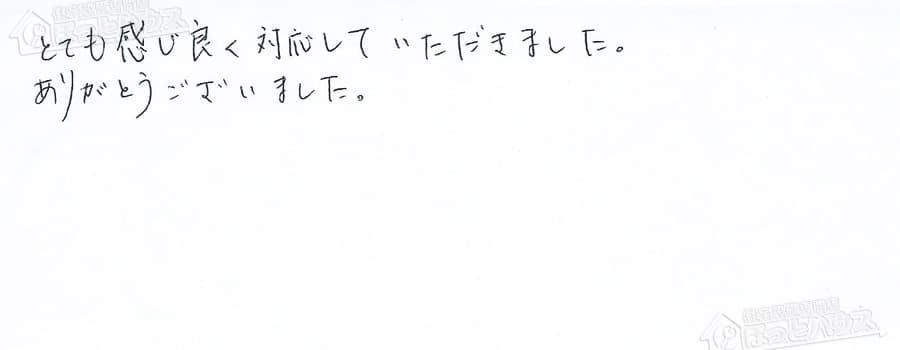 とても感じ良く対応していただきました。
ありがとうございました。
ほっとハウス